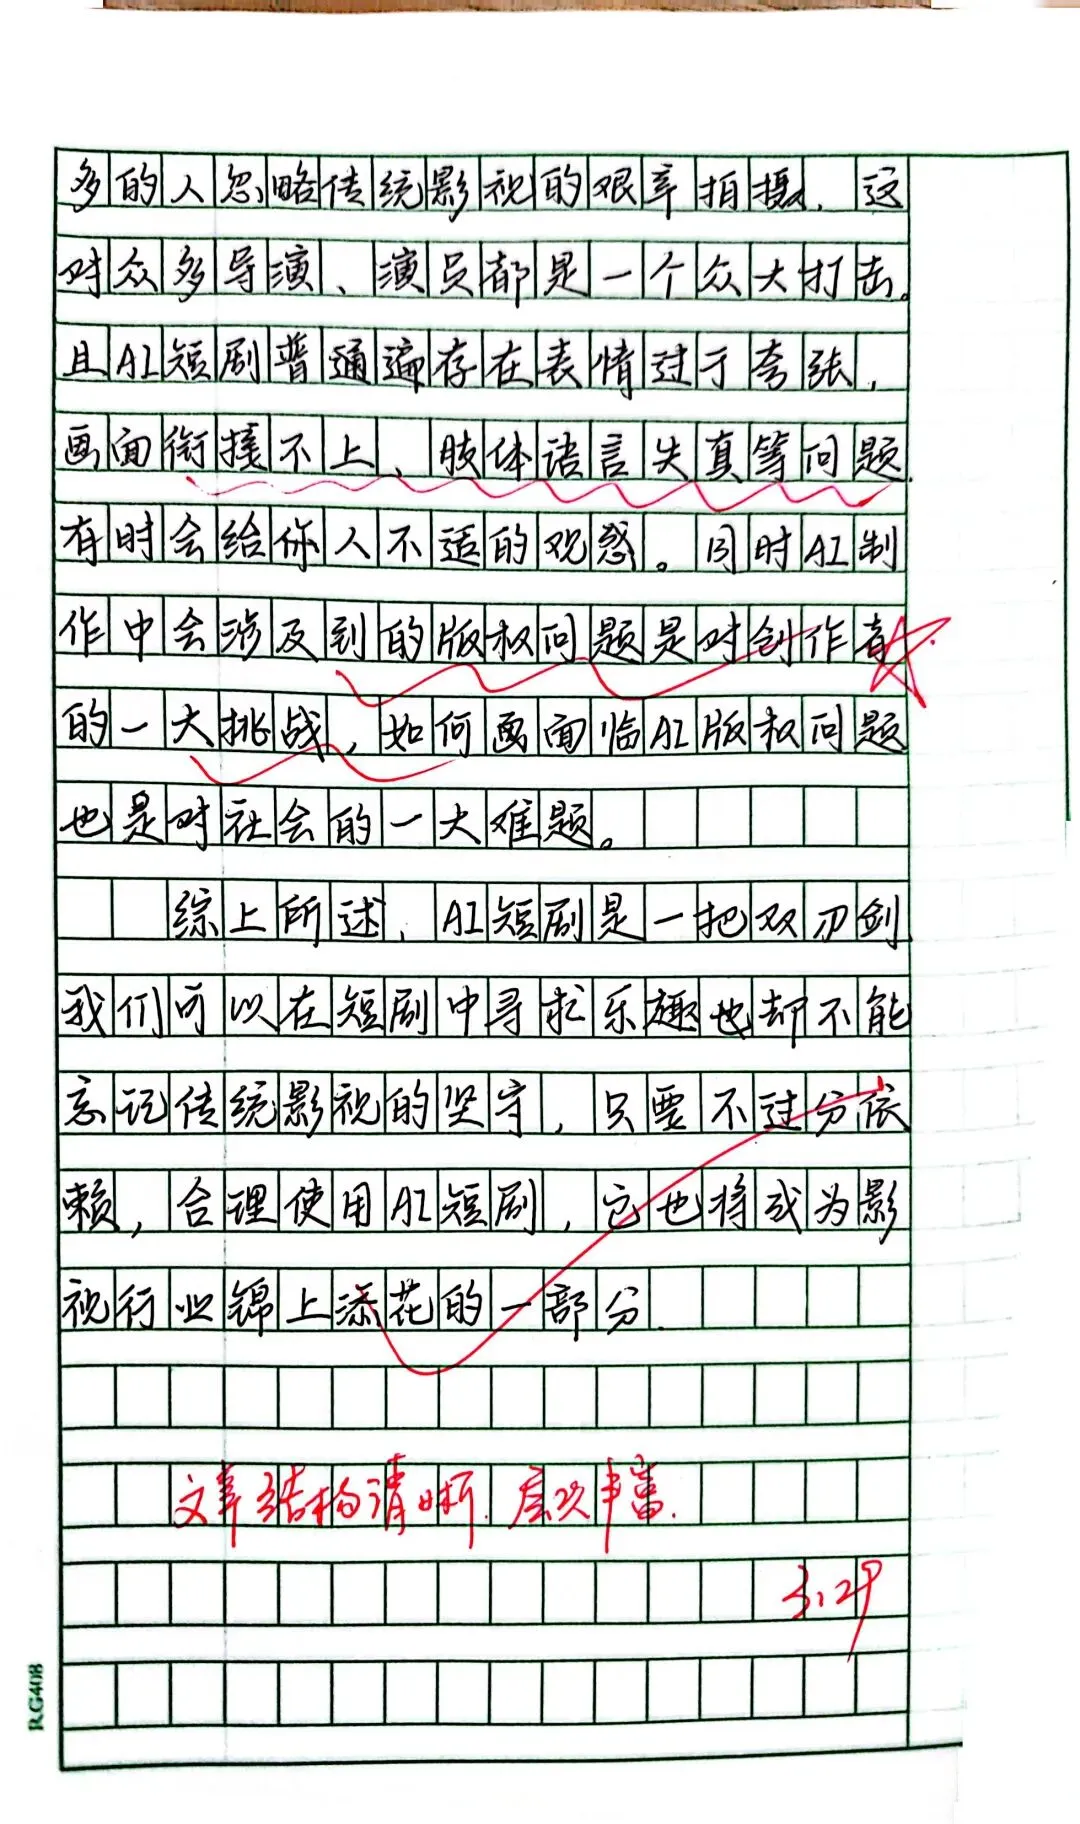 多的人忽略传统影视的艰辛拍摄，这
对众多导演、演员都是一个众大打击。
且AI短剧普通遍存在表情过于夸张，
画面衔接不上、肢体语言失真等问题.
有时会给你人不适的观感。同时AI制
作中会涉及到的版权问题是对创作者
的一大挑战，如何画面临AI版权问题
也是对社会的一大难题。
综上所述，AI短剧是一把双刃剑
我们可以在短剧中寻求乐趣也却不能
忘记传统影视的坚守，只要不过分依
赖，合理使用AI短剧，它也将成为影
视行业锦上添花的一部分.
文章结构清晰.层次丰富.
3.29
RG408